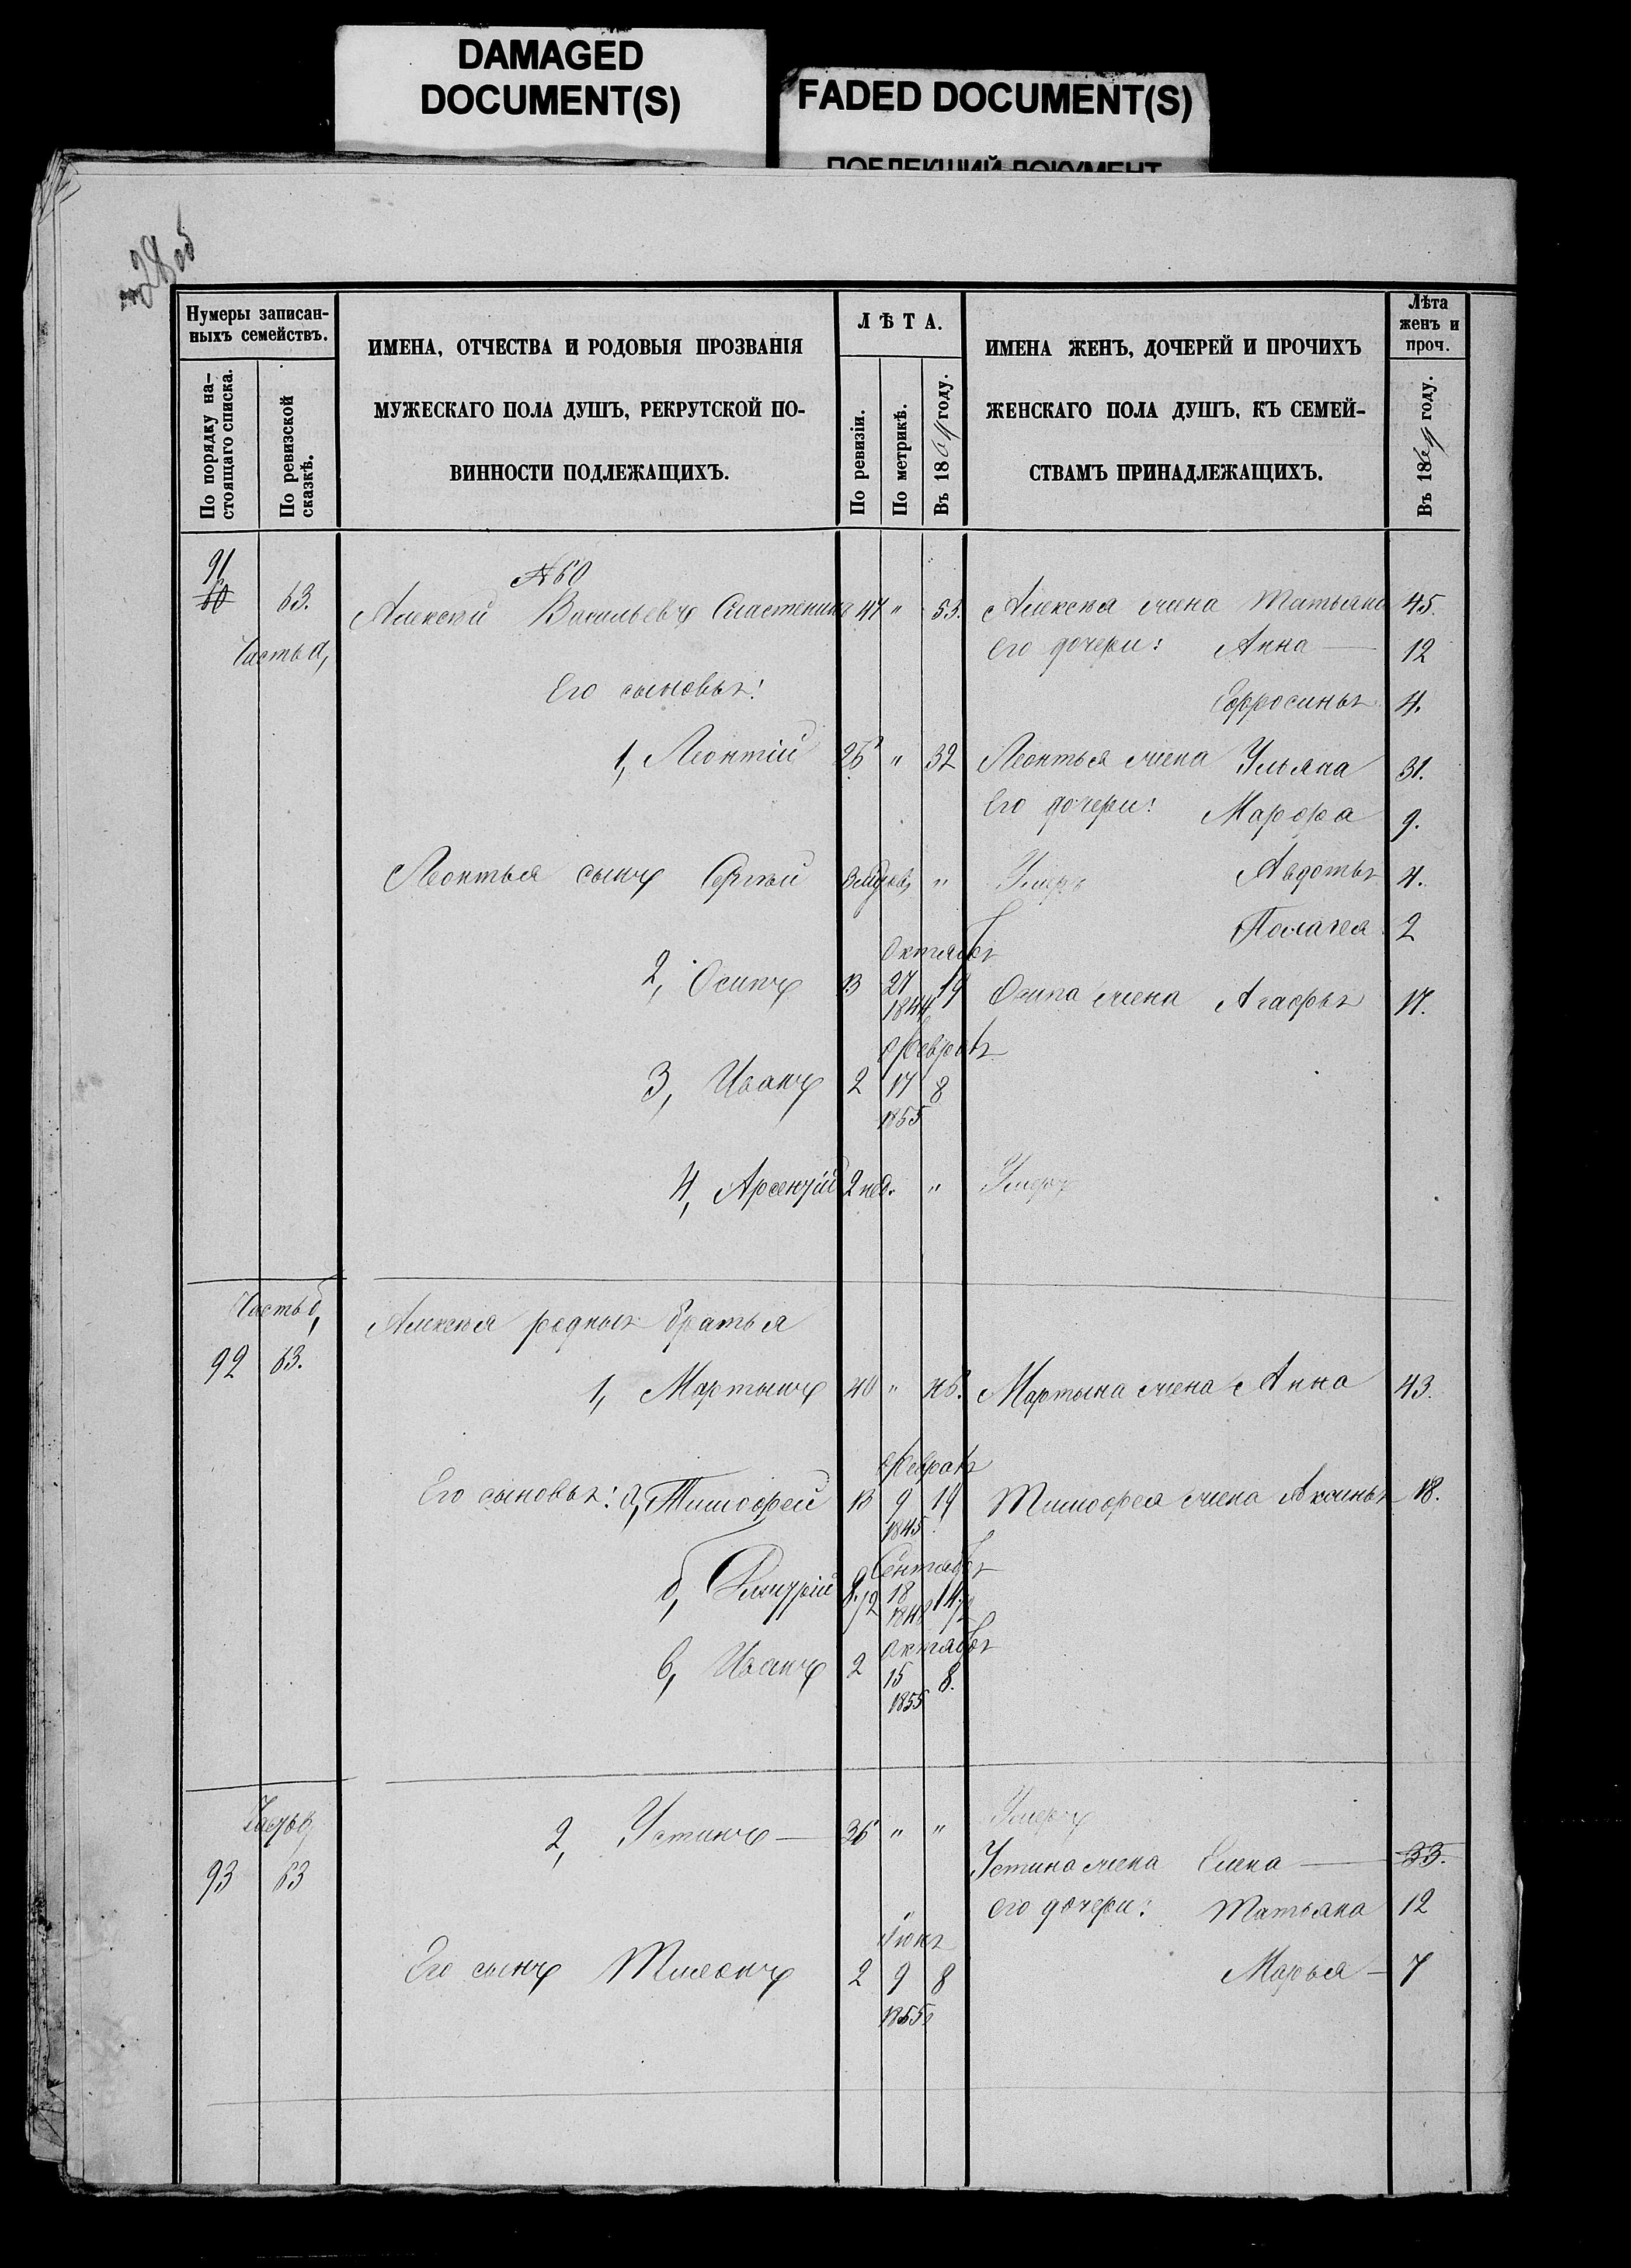 DAMAGED
DOCUMENT(S)
FADED DOCUMENT(S)
ПОБЛЕКШИЙ ДОКУМЕНТ
28 об
Нумеры записан-
ныхъ семействъ.
По порядку на-
стоящаго списка.
По ревизской
сказкѣ.
ИМЕНА, ОТЧЕСТВА И РОДОВЫЯ ПРОЗВАНІЯ
МУЖЕСКАГО ПОЛА ДУШЪ, РЕКРУТСКОЙ ПО-
ВИННОСТИ ПОДЛЕЖАЩИХЪ.
ЛѢТА.
По ревизіи.
По метрикѣ.
Въ 1864 году.
ИМЕНА ЖЕНЪ, ДОЧЕРЕЙ И ПРОЧИХЪ
ЖЕНСКАГО ПОЛА ДУШЪ, КЪ СЕМЕЙ-
СТВАМЪ ПРИНАДЛЕЖАЩИХЪ.
Лѣта
женъ и
проч.
Въ 1864 году.
91
№ 60
60 63. Алексѣй Васильевъ Сластенинъ 47 " 53. Алексѣя жена Татьяна 45.
Часть а, его дочери: Анна — 12
Его сыновья: Ефросинья 4.
1, Леонтій 26 " 32 Леонтья жена Ульяна 31.
Его дочери: Марфа 9.
Леонтья сынъ Сергѣй " Умеръ Авдотья 4.
Пелагея 2
Октября
2, Осипъ 13 27 19 Осипа жена Агафья 17.
1844
Февраля
3, Иванъ 2 17 8
1855
4, Арсентій 2 нед. " Умеръ
Часть б, Алексѣя родные братья
92 63.
1, Мартынъ 40 " 46. Мартына жена Анна 43.
Февраля
Его сыновья: а, Тимофей 13 9 19 Тимофея жена Аксинья 18.
1845
Сентября
б, 18
в, Иванъ 2 Октября
15 8.
1855
Часть в,
2, Устинъ — 36 " " Умеръ
93 63 Устина жена Елена — 33.
его дочери: Татьяна 12
Іюня
Его сынъ 2 9 8 Марья — 7
1855